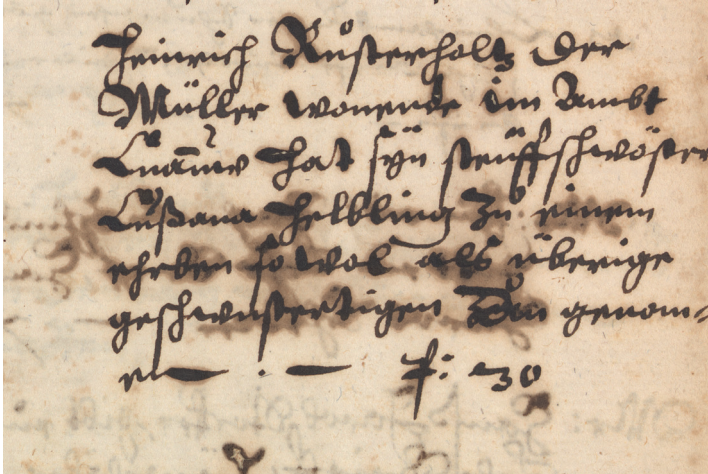 Heinrich Růsterholtz der
Müller wonende im Ambt
hat syn steüffschwöster
Sußana Helbling zů einem
ehrben so wol als überige
geschwüstertigen genom-
en — . — f: 30